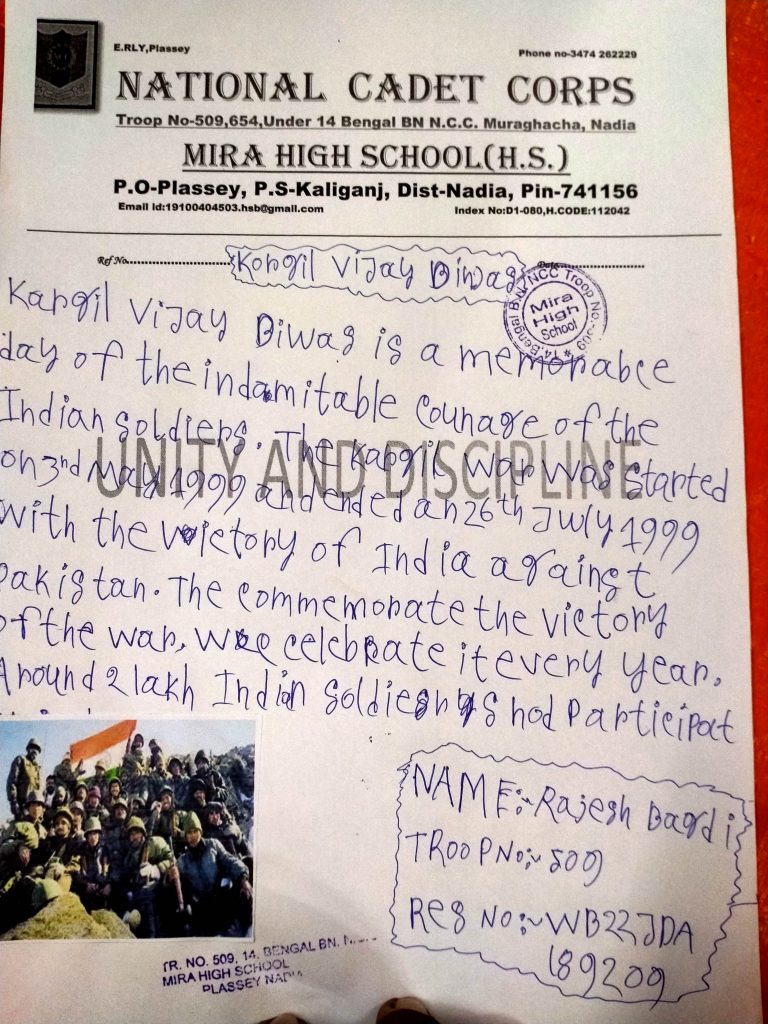 E.RLY,Plassey
Phone no-3474 262229
NATIONAL CADET CORPS
Troop No-509,654,Under 14 Bengal BN N.C.C. Muraghacha, Nadia
MIRA HIGH SCHOOL(H.S.)
P.O-Plassey, P.S-Kaliganj, Dist-Nadia, Pin-741156
Email id:19100404503.hsb@gmail.com
Index No:D1-080,H.CODE:112042
Ref No.
Date
Kargil Vijay Diwas
14, Bengal B.N. NCC Troop No-509 * Mira High School
Kargil Vijay Diwas is a memorabce
day of the indamitable Counage of the
Indian Soldiers. The Kargil War was started
on 3rd May 1999 and ended an 26th July 1999
UNITY AND DISCIPLINE
with the victory of India against
Pakistan. The commemorate the victory
of the war, we celebrate it every year.
Around 2 lakh Indian Soldiers had Participat
NAME:- Rajesh Bagdi
TROOP No:- 509
Reg No:- WB22JDA
189209
TR. NO. 509, 14, BENGAL BN.
MIRA HIGH SCHOOL
PLASSEY NADIA